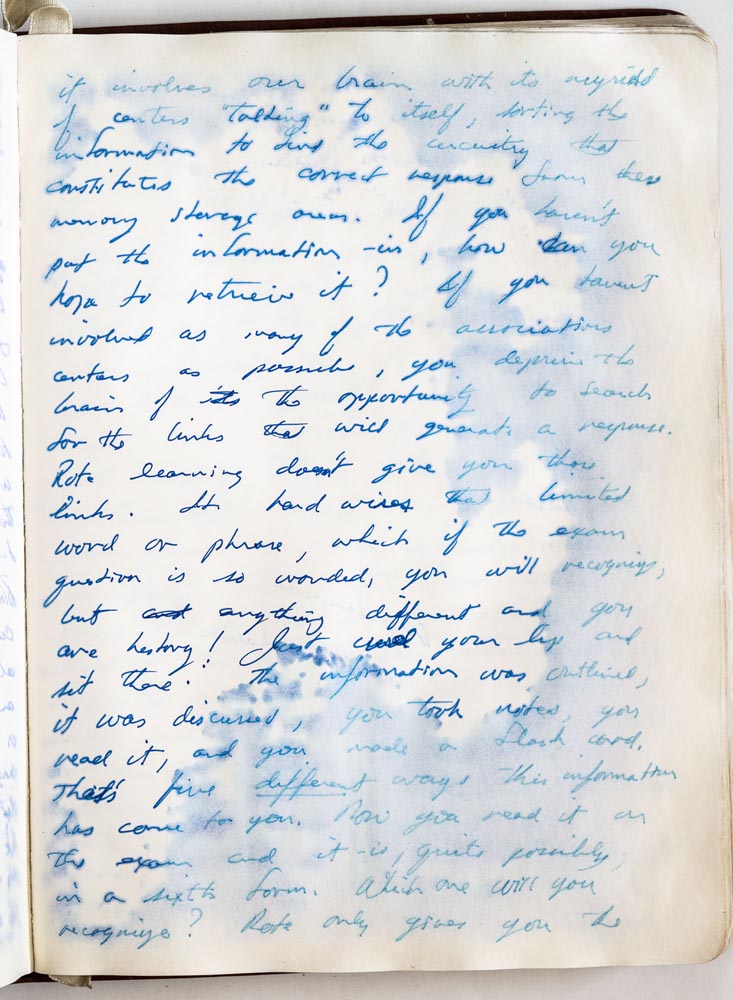 it involves our brain with its myriad
of centers "talking" to itself, sorting the
information to find the circuitry that
constitutes the correct response from these
memory storage areas. If you haven't
put the information in, how can you
hope to retrieve it? If you haven't
involved as many of the association
centers as possible, you deprive the
brain of its the opportunity to search
for the links that will generate a response.
Rote learning doesn't give you those
links. It hard wires that limited
word or phrase, which if the exam
question is so worded, you will recognize,
but and anything different and you
are history! Just your lip and
sit there. The information was outlined,
it was discussed, you took notes, you
read it, and you made a flash card.
That's five different ways this information
has come to you. Now you read it on
the exam and it is, quite possibly,
in a sixth form. Which one will you
recognize? Rote only gives you the